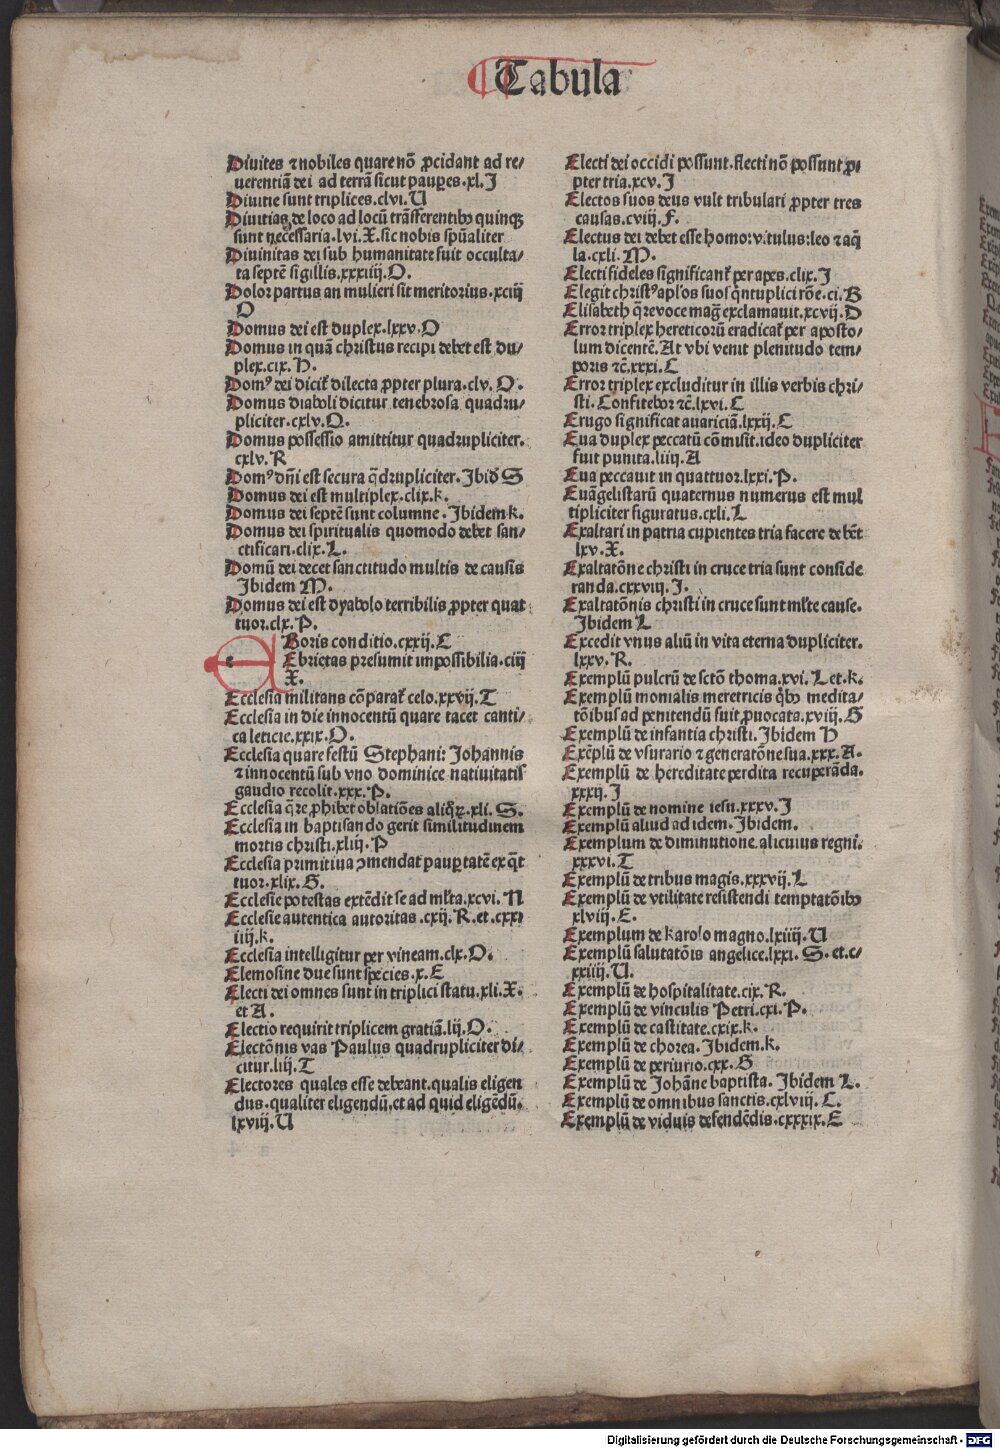 Tabula
Diuites ⁊ nobiles quare nō ꝓcidant ad re/
uerentiā dei ad terrā sicut pauꝑes.xl.J
Diuitie sunt triplices.clvi.U
Diuitias de loco ad locū trāsferentibꝰ quinqꝫ
sunt necessaria.lvi.X.sic nobis spūaliter
Diuinitas dei sub humanitate fuit occulta/
ta septē sigillis.xxxiiij.O.
Dolor partus an mulieri sit meritorius.xciij
O
Domus dei est duplex.lxxv.O
Domus in quā christus recipi debet est du/
plex.cix.H.
Domꝰ dei dicit̉ dilecta ꝓpter plura.clv.O.
Domus diaboli dicitur tenebrosa quadru/
pliciter.cxlv.Q.
Domus possessio amittitur quadrupliciter.
cxlv.R
Domꝰ dn̄i est secura q̄drupliciter.Jbid̄ S
Domus dei est multiplex.clix.k.
Domus dei septē sunt columne.Jbidem k.
Domus dei spiritualis quomodo debet san/
ctificari.clix.L.
Domū dei decet sanctitudo multis de causis
Jbidem M.
Domus dei est dyabolo terribilis ꝓpter quat
tuor.clx.P.
e
Boris conditio.cxxij.C
Ebrietas presumit impossibilia.ciij
X.
Ecclesia militans cōparat̉ celo.xxvij.T
Ecclesia in die innocentū quare tacet canti/
ca leticie.xxix.O.
Ecclesia quare festū Stephani: Johannis
⁊ innocentū sub vno dominice natiuitatis
gaudio recolit.xxx.P.
Ecclesia q̄re ꝓhibet oblatiōes aliq̄ꝝ.xli.S.
Ecclesia in baptisando gerit similitudinem
mortis christi.xliij.P
Ecclesia primitiua ꝯmendat pauꝑtatē ex q̄t
tuor.xlix.G.
Ecclesie potestas extēdit se ad ml̓ta.xcvi.N
Ecclesie autentica autoritas.cxij.R.et.cxxi
iiij.k.
Ecclesia intelligitur per vineam.clx.O.
Elemosine due sunt species.x.E
Electi dei omnes sunt in triplici statu.xli.X.
et A.
Electio requirit triplicem gratiā.lij.O.
Electōnis vas Paulus quadrupliciter di/
citur.liij.T
Electores quales esse debeant.qualis eligen
dus.qualiter eligendū.et ad quid eligēdū.
lxviij.U
Electi dei occidi possunt.flecti nō possunt ꝓ/
pter tria.xcv.J
Electos suos deus vult tribulari ꝓpter tres
causas.cviij.F.
Electus dei debet esse homo:vitulus:leo ⁊ aq̄
la.cxli.M.
Electi fideles significant̉ per apes.clix.J
Elegit christꝰ apl̓os suos q̄ntuplici rōe.ci.B
Elisabeth q̄re voce mag̅ exclamauit.xcvij.D
Error triplex hereticorū eradicat̉ per aposto/
lum dicentē.At vbi venit plenitudo tem/
poris ⁊c̄.xxxi.C
Error triplex excluditur in illis verbis chri/
sti.Confitebor ⁊c̄.lxvi.C
Erugo significat auariciā.lxxij.C
Eua duplex peccatū cōmisit.ideo dupliciter
fuit punita.liiij.A
Eua peccauit in quattuor.lxxi.P.
Euāgelistarū quaternus numerus est mul
tipliciter figuratus.cxli.L
Exaltari in patria cupientes tria facere debēt
lxv.X.
Exaltatōne christi in cruce tria sunt conside
randa.cxxviij.J.
Exaltatōnis christi in cruce sunt ml̓te cause.
Jbidem L
Excedit vnus aliū in vita eterna dupliciter.
lxxv.R.
Exemplū pulcrū de sctō thoma.xvi.L et.k.
Exemplū monialis meretricis q̄bꝰ medita/
tōibus ad penitendū fuit ꝓuocata.xviij.G
Exemplū de infantia christi.Jbidem H
Exēplū de vsurario ⁊ generatōne sua.xxx.A.
Exemplū de hereditate perdita recuperāda.
xxxij.J
Exemplū de nomine iesu.xxxv.J
Exemplū aliud ad idem.Jbidem.
Exemplum de diminutione alicuius regni.
xxxvi.T
Exemplū de tribus magis.xxxvij.L
Exemplū de vtilitate resistendi temptatōibꝰ
xlviij.E.
Exemplum de karolo magno.lxiiij.U
Exemplū salutatōis angelice.lxxi.S.et.c/
xxiiij.U.
Exemplū de hospitalitate.cix.R.
Exemplū de vinculis Petri.cxi.P.
Exemplū de castitate.cxix.k.
Exemplū de chorea.Jbidem.k.
Exemplū de periurio.cxx.G
Exemplū de Johāne baptista.Jbidem L.
Exemplū de omnibus sanctis.cxlviij.C.
Exemplū de viduis defendēdis.cxxxix.E
Digitalisierung gefördert durch die Deutsche Forschungsgemeinschaft - DFG